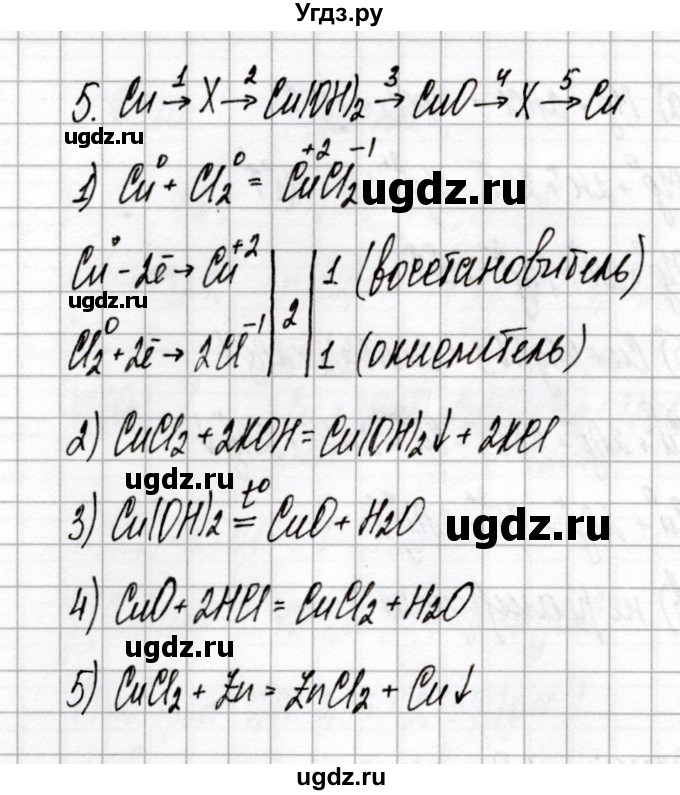 Угдз.ру
5. Cu →1 X →2 Cu(OH)2 →3 CuO →4 X →5 Cu
ugdz.ru
1) Cu⁰ + Cl2⁰ = Cu⁺²Cl2⁻¹
ugdz.ru
Cu⁰ - 2ē → Cu⁺² | 2 | 1 (восстановитель)
ugdz.ru
Cl2⁰ + 2ē → 2Cl⁻¹ | 1 (окислитель)
2) CuCl2 + 2KOH = Cu(OH)2↓ + 2KCl
ugdz.ru
3) Cu(OH)2 =t° CuO + H2O
ugdz.ru
4) CuO + 2HCl = CuCl2 + H2O
ugdz.ru
5) CuCl2 + Zn = ZnCl2 + Cu↓
ugdz.ru